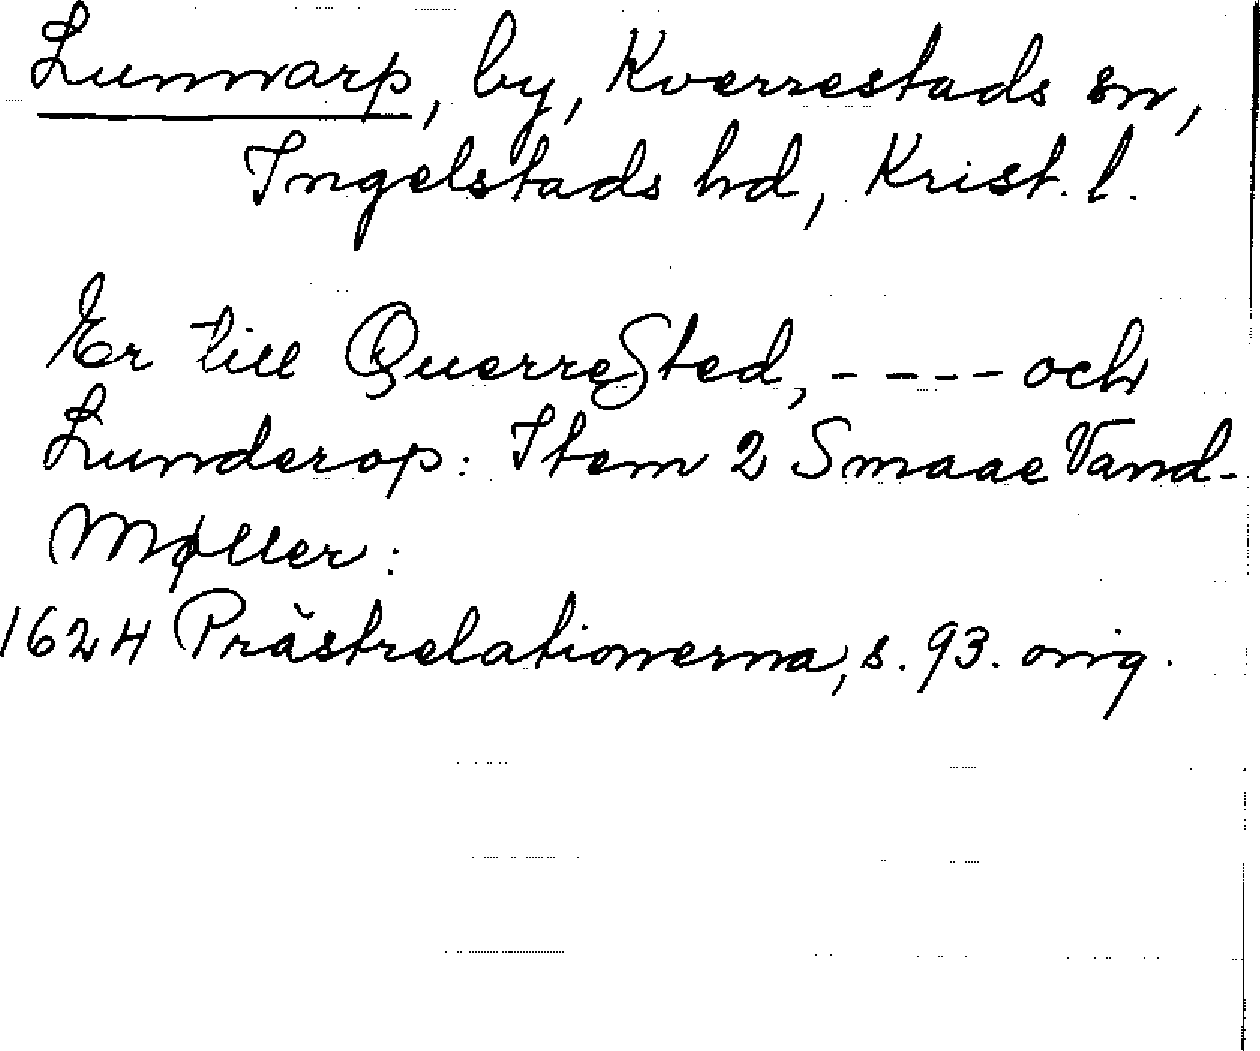 Lunnarp, by, Kverrestads sn,
Ingelstads hd, Krist. l.
Er till QuerreSted, - - - - och
Lunderop: Item 2 Smaae Vand-
Møller:
1624 Prästrelationerna, s. 93. orig.